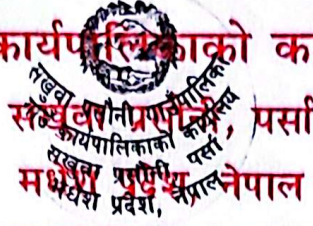 कार्यपालिकाको क
सखुवा प्रसौनी, पर्सा
मधेश प्रदेश, नेपाल
सखुवा प्रसौनी गाउँपालिका
गाउँ कार्यपालिकाको कार्यालय
सखुवा प्रसौनी, पर्सा
मधेश प्रदेश, नेपाल